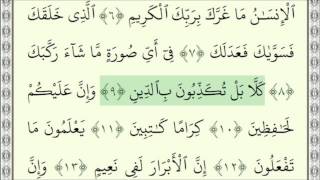 الْإِنسَـٰنُ مَا غَرَّكَ بِرَبِّكَ الْكَرِيمِ ﴿٦﴾ الَّذِى خَلَقَكَ
فَسَوَّىٰكَ فَعَدَلَكَ ﴿٧﴾ فِىٓ أَىِّ صُورَةٍ مَّا شَآءَ رَكَّبَكَ
﴿٨﴾ كَلَّا بَلْ تُكَذِّبُونَ بِالدِّينِ ﴿٩﴾ وَإِنَّ عَلَيْكُمْ
لَحَـٰفِظِينَ ﴿١٠﴾ كِرَامًا كَـٰتِبِينَ ﴿١١﴾ يَعْلَمُونَ مَا
تَفْعَلُونَ ﴿١٢﴾ إِنَّ الْأَبْرَارَ لَفِى نَعِيمٍ ﴿١٣﴾ وَإِنَّ